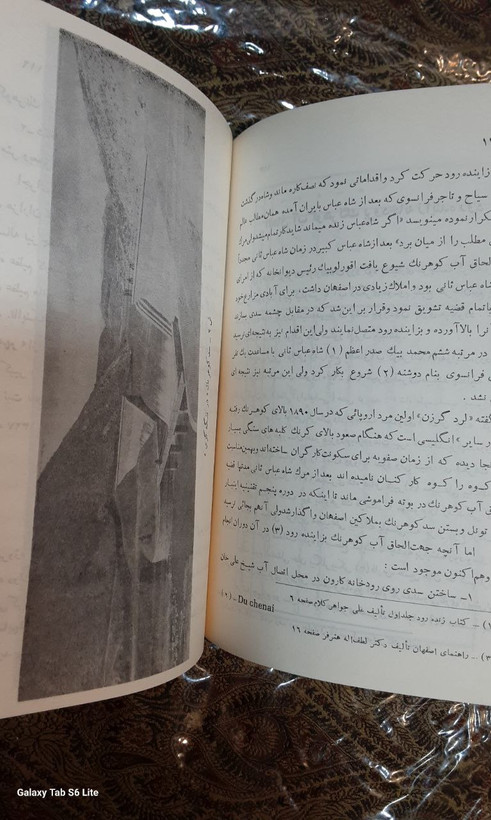 زاینده رود حرکت کرد و اقداماتی نمود که نصفه‌کاره ماند و شاه در گذشت
سیاح و تاجر فرانسوی که بعد از شاه عباس بایران آمده همان مطالب فالم
تکرار نموده مینویسد «اگر شاه‌عباس زنده میماند شاید کار تمام میشد ولی مرگ
مطلب را از میان برد» بعد از شاه عباس کبیر در زمان شاه عباس ثانی مجدداً
الحاق آب کوهرنگ شیوع یافت اقوراوبیك رئیس دیوانخانه که از امرای
شاه عباس ثانی بود و املاك زیادی در اصفهان داشت، برای آبادی مزارع خود
باتمام قضیه تشویق نمود وقرار بر این شد که در مقابل چشمه سدی بسازند
را بالا آورده و بزاینده رود متصل نمایند ولی این اقدام نیز به نتیجه‌ای نرسید
در مرتبه ششم محمد بیك صدر اعظم (۱) شاه عباس ثانی با مساعدت یك نفر
فرانسوی بنام دوشنه (۲) شروع بکار کرد ولی این مرتبه نیز نتیجه ای
نشد .
گفته «لرد کرزن» اولین مرد اروپائی که در سال ۱۸۹۰ بالای کوهرنك رفته
سایر» انگلیسی است که هنگام صعود بالای کرنك کلبه های سنگی بسیار
دیده که از زمان صفویه برای سکونت کارگران ساخته‌اند و بهمین مناسبت
کوه را کوه کار کنان نامیده اند بعد از مرك شاه عباس ثانی مدتها قضیه
آب کوهرنك در بوته فراموشی ماند تا اینکه در دوره پنجم تقنینیه امتیاز
تونل و بستن سد کوهرنك بملاکین اصفهان واگذار شد ولی آنهم بجائی نرسید
اما آنچه جهت الحاق آب کوهرنك بزاینده رود (۳) در آن دوران انجام
وهم اکنون موجود است :
۱ـ ساختن سدی روی رودخانه کارون در محل اتصال آب شیخ علی خان
۱) ـ کتاب زنده رود جلد اول تألیف علی جواهر کلام صفحه ۶
(۲) ـ Du chenai
۳) ـ راهنمای اصفهان تألیف دکتر لطف‌اله هنرفر صفحه ۱۶
Galaxy Tab S6 Lite